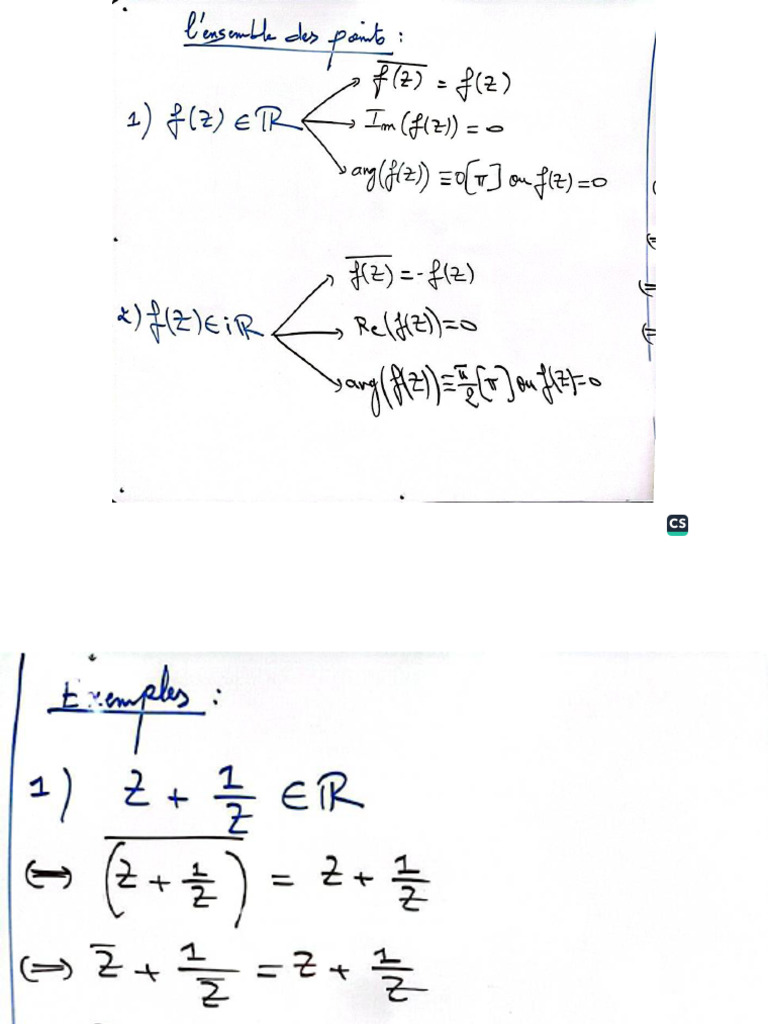 l'ensemble des points :
1) f(z) ∈ ℝ
\overline{f(z)} = f(z)
Im(f(z)) = 0
arg(f(z)) ≡ 0[π] ou f(z) = 0
2) f(z) ∈ iℝ
\overline{f(z)} = -f(z)
Re(f(z)) = 0
arg(f(z)) ≡ \frac{π}{2}[π] ou f(z) = 0
CS
Exemples :
1) z + \frac{1}{z} ∈ ℝ
⟺ \overline{(z + \frac{1}{z})} = z + \frac{1}{z}
⟺ \overline{z} + \frac{1}{\overline{z}} = z + \frac{1}{z}